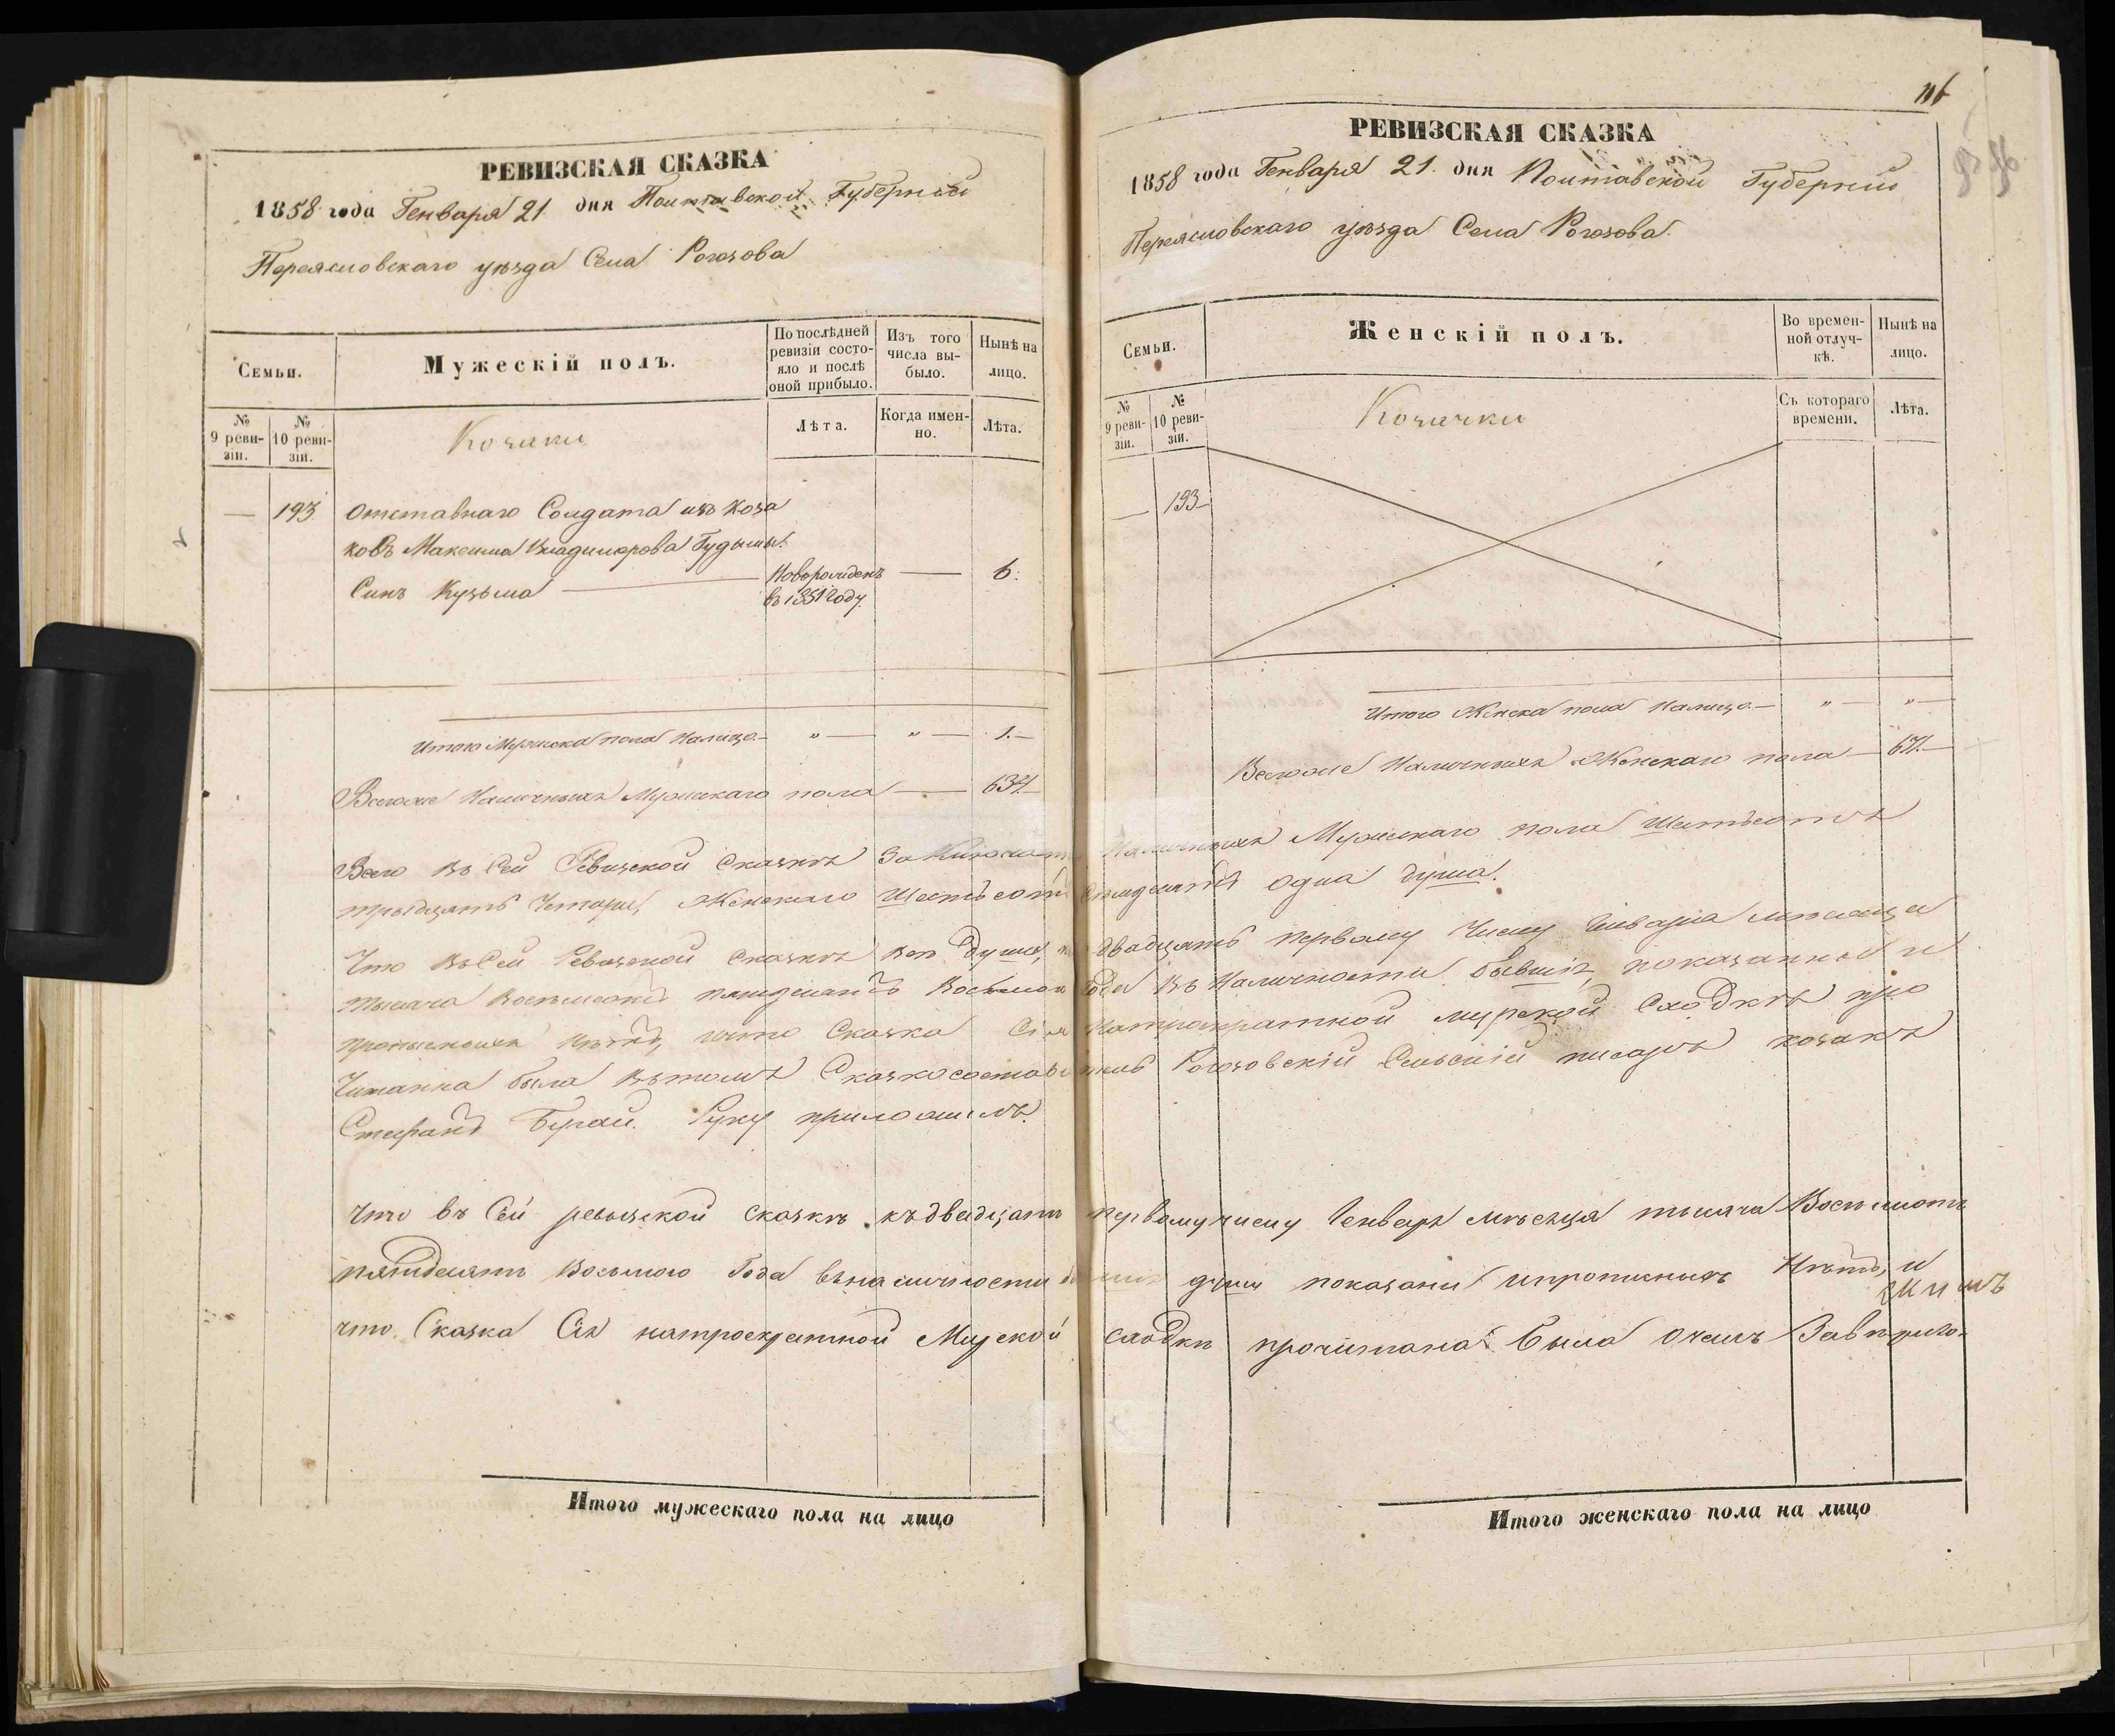 РЕВИЗСКАЯ СКАЗКА
1858 года Генваря 21 дня Полтавской Губерніи
Переясловскаго уѣзда Села Рогозова
Семьи.
Мужескій полъ.
По послѣдней ревизіи состояло и послѣ оной прибыло.
Изъ того числа выбыло.
Нынѣ на лицо.
№ 9 ревизіи.
№ 10 ревизіи.
Козаки
Лѣта.
Когда именно.
Лѣта.
— 193 Отставнаго Солдата изъ Коза
ковъ Максима Владимірова Гудимы
Синъ Кузьма — Новорожденъ — 6.
въ 1851 году.
Итого Мужеска пола Налицо — „ — „ — 1. —
Всего же Наличныхъ Мужескаго пола — 634
РЕВИЗСКАЯ СКАЗКА
1858 года Генваря 21. дня Полтавской Губерніи
Переясловскаго уѣзда Села Рогозова.
Семьи.
Женскій полъ.
Во временной отлучкѣ.
Нынѣ на лицо.
№ 9 ревизіи.
№ 10 ревизіи.
Козачки
Съ котораго времени.
Лѣта.
— 193
Итого Женска пола Налицо — „ — „ —
Всего же Наличныхъ Женскаго пола — 671. —
Всего въ Сей Ревизской Сказкѣ Заключается Наличныхъ Мужескаго пола Шестьсотъ
тридцать Четыри, Женскаго Шестьсотъ Семдесятъ одна душа.
Что въ Сей Ревизской Сказкѣ всѣ души, къ двадцать первому Числу Генваря мѣсяца
тысяча восемьсотъ пятдесятъ Восьмого Года въ Наличности бывшіе показанны и
прописныхъ Нѣтъ, что Сказка Сія Натрократной мирской Сходкѣ про
Читанна была вътомъ Сказкосоставитель Рогозовскій Сельскій писарь козакъ
Стефанъ Бугай. Руку приложилъ.
Что въ Сей ревизской сказкѣ къ двадцать первому числу Генваря мѣсяца тысяча Восемсотъ
пятдесятъ Восьмого Года вналичности бывшіе души показани ипрописныхъ Нѣтъ, и
что Сказка Сія натроекратной Мирской сходки прочитана была очемъ Засвидите